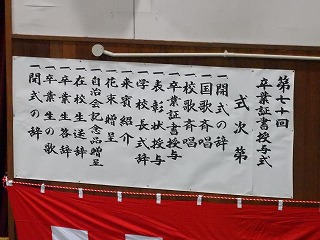 第七十回
卒業証書授与式
式次第
一開式の辞
一国歌斉唱
一校歌斉唱
一卒業証書授与
一表彰状授与
一学校長式辞
一来賓紹介
一花束贈呈
一自治会記念品贈呈
一在校生送辞
一卒業生答辞
一卒業生の歌
一閉式の辞